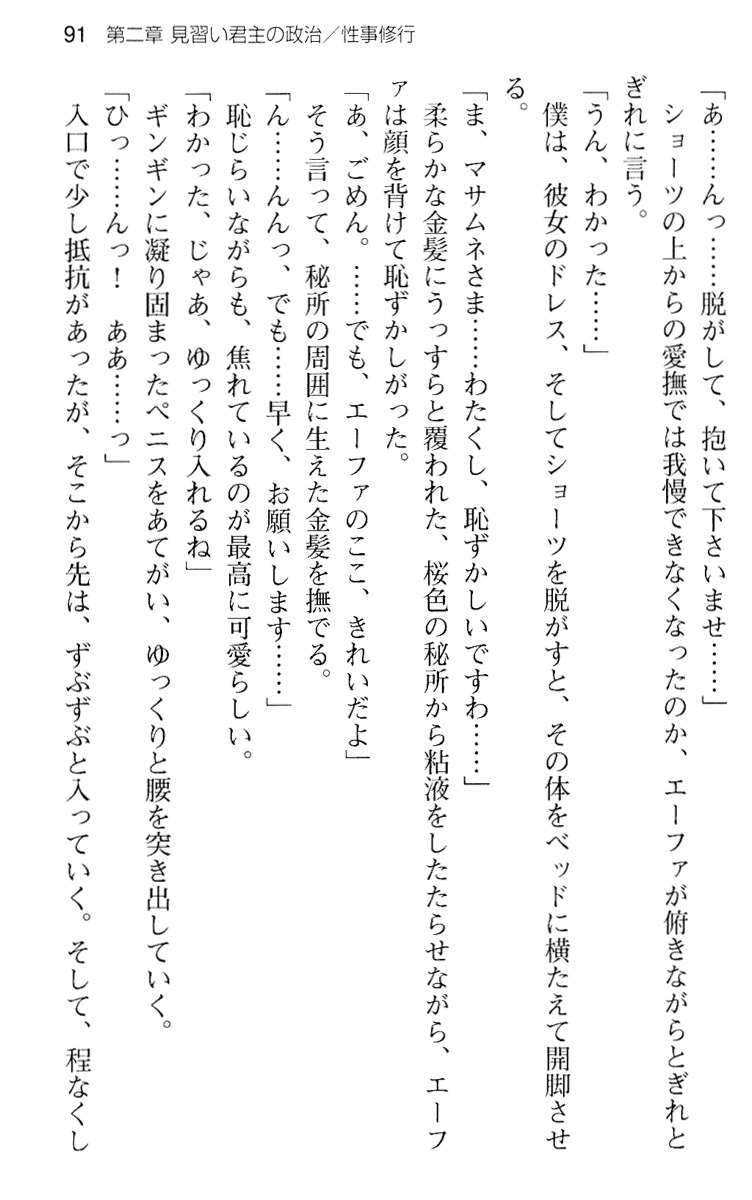 91 第二章 見習い君主の政治／性事修行
「あ……んっ……脱がして、抱いて下さいませ……」
　ショーツの上からの愛撫では我慢できなくなったのか、エーファが俯きながらとぎれと
ぎれに言う。
「うん、わかった……」
　僕は、彼女のドレス、そしてショーツを脱がすと、その体をベッドに横たえて開脚させ
る。
「ま、マサムネさま……わたくし、恥ずかしいですわ……」
　柔らかな金髪にうっすらと覆われた、桜色の秘所から粘液をしたたらせながら、エーフ
ァは顔を背けて恥ずかしがった。
「あ、ごめん。……でも、エーファのここ、きれいだよ」
　そう言って、秘所の周囲に生えた金髪を撫でる。
「ん……んんっ、でも……早く、お願いします……」
　恥じらいながらも、焦れているのが最高に可愛らしい。
「わかった、じゃあ、ゆっくり入れるね」
　ギンギンに凝り固まったペニスをあてがい、ゆっくりと腰を突き出していく。
「ひっ……んっ！　ああ……っ」
　入口で少し抵抗があったが、そこから先は、ずぶずぶと入っていく。そして、程なくし